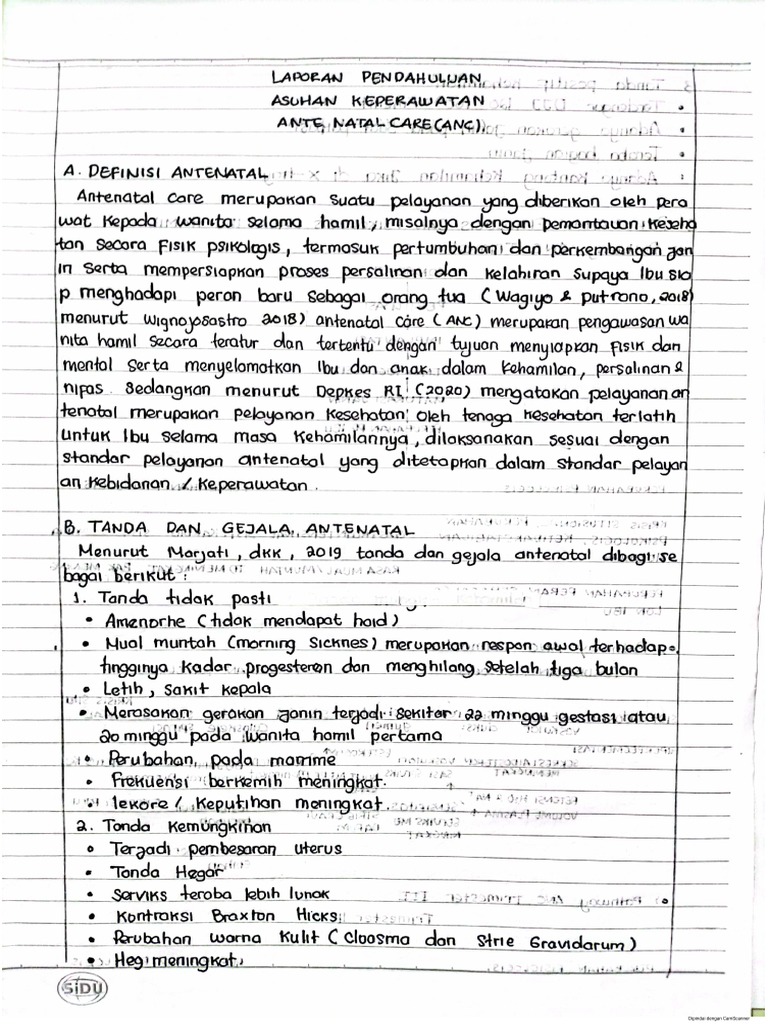 LAPORAN PENDAHULUAN
ASUHAN KEPERAWATAN
ANTE NATAL CARE (ANC)
A. DEFINISI ANTENATAL
Antenatal care merupakan suatu pelayanan yang diberikan oleh pera
wat kepada wanita selama hamil, misalnya dengan pemantauan keseha
tan secara fisik psikologis, termasuk pertumbuhan dan perkembangan jan
in serta mempersiapkan proses persalinan dan kelahiran supaya Ibu sia
p menghadapi peran baru sebagai orang tua (Wagiyo & Putrono, 2018)
menurut Wignojosastro 2018) antenatal care (ANC) merupakan pengawasan wa
nita hamil secara teratur dan tertentu dengan tujuan menyiapkan fisik dan
mental serta menyelamatkan Ibu dan anak dalam kehamilan, persalinan &
nifas. Sedangkan menurut Depkes RI (2020) mengatakan pelayanan an
tenatal merupakan pelayanan kesehatan oleh tenaga kesehatan terlatih
untuk Ibu selama masa kehamilannya, dilaksanakan sesuai dengan
standar pelayanan antenatal yang ditetapkan dalam standar pelayan
an kebidanan / keperawatan.
B. TANDA DAN GEJALA ANTENATAL
Menurut Marjati, dkk, 2019 tanda dan gejala antenatal dibagi se
bagai berikut :
1. Tanda tidak pasti
• Amenorhe (tidak mendapat haid)
• Mual muntah (morning sicknes) merupakan respon awal terhadap
tingginya kadar progesteron dan menghilang setelah tiga bulan
• Letih, sakit kepala
• Merasakan gerakan janin terjadi sekitar 22 minggu gestasi atau
20 minggu pada wanita hamil pertama
• Perubahan pada mamme
• Frekuensi berkemih meningkat.
• lekore / keputihan meningkat.
2. Tanda kemungkinan
• Terjadi pembesaran uterus
• Tanda Hegar
• Serviks teraba lebih lunak
• Kontraksi Braxton Hicks
• Perubahan warna kulit (Cloasma dan Strie Gravidarum)
• Hegi meningkat
SiDU
Dipindai dengan CamScanner